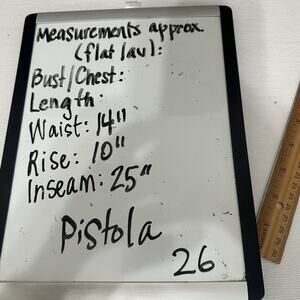 Measurements approx.
(flat lay):
Bust/Chest:
Length:
Waist: 14"
Rise: 10"
Inseam: 25"
Pistola
26